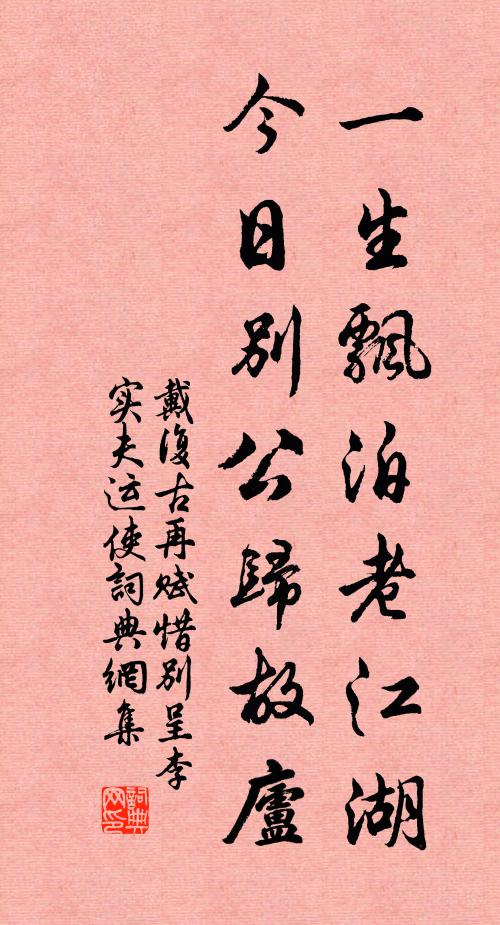 一生飄泊老江湖
今日別公歸故廬
戴復古再赋惜别呈李
实夫运使詞典網集
詞典网印